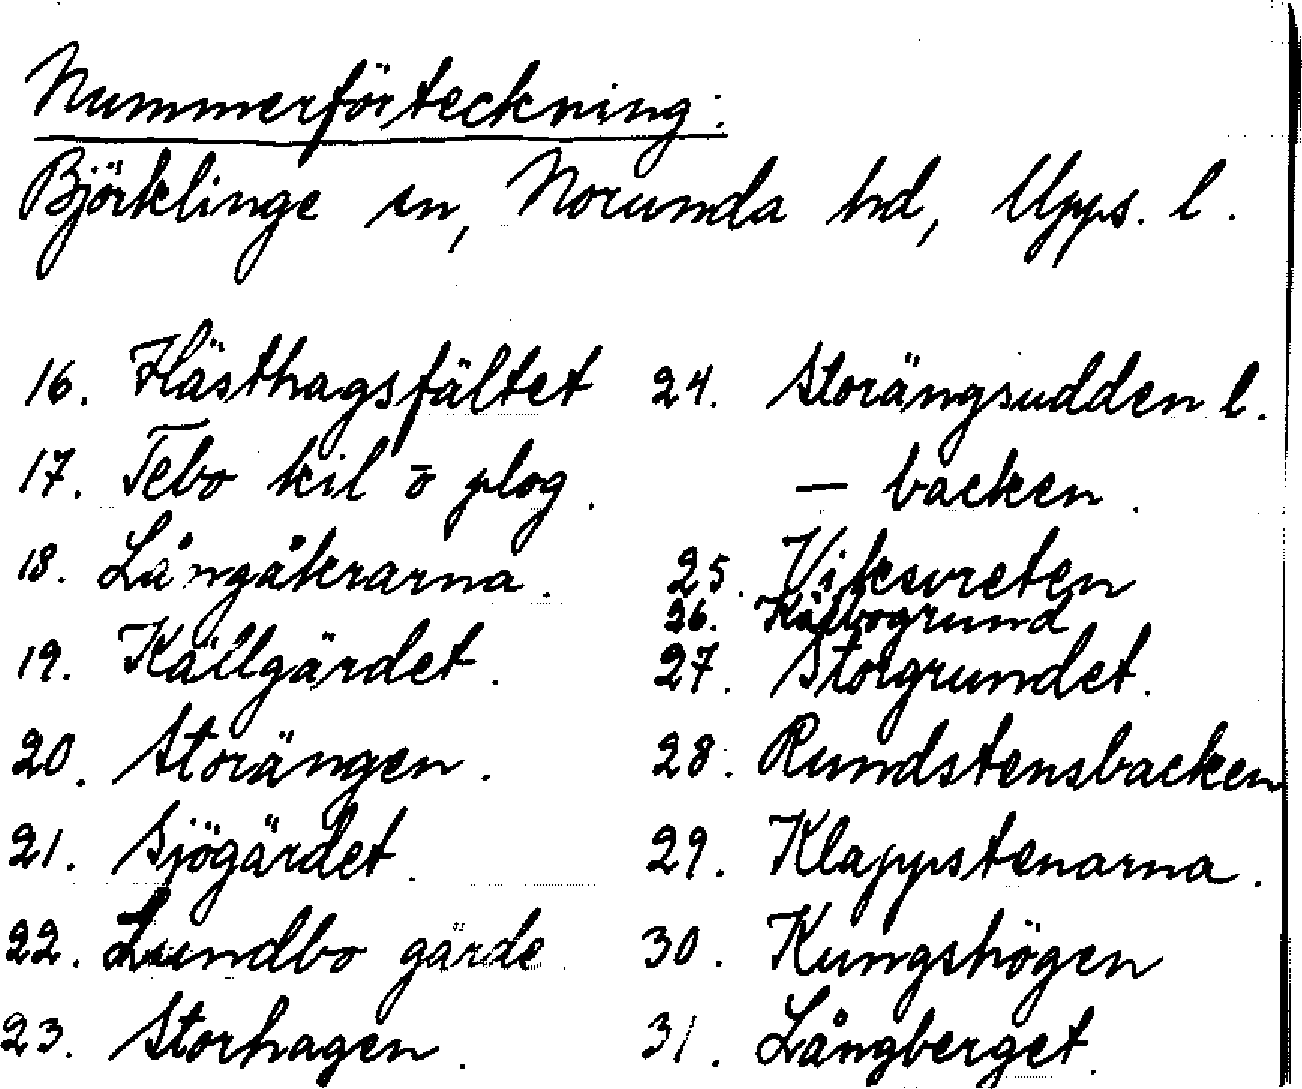 Nummerförteckning:
Björklinge sn, Norunda hd, Upps. l.
16. Hästhagsfältet
17. Tebo kil o plog.
18. Långåkrarna.
19. Källgärdet.
20. Storängen.
21. Sjögärdet.
22. Lundbo gärde
23. Storhagen.
24. Storängsudden l.
— backen.
25. Viksvreten
26. Kälbogrund
27. Storgrundet.
28. Rundstensbacken
29. Klappstenarna.
30. Kungshögen
31. Långberget.